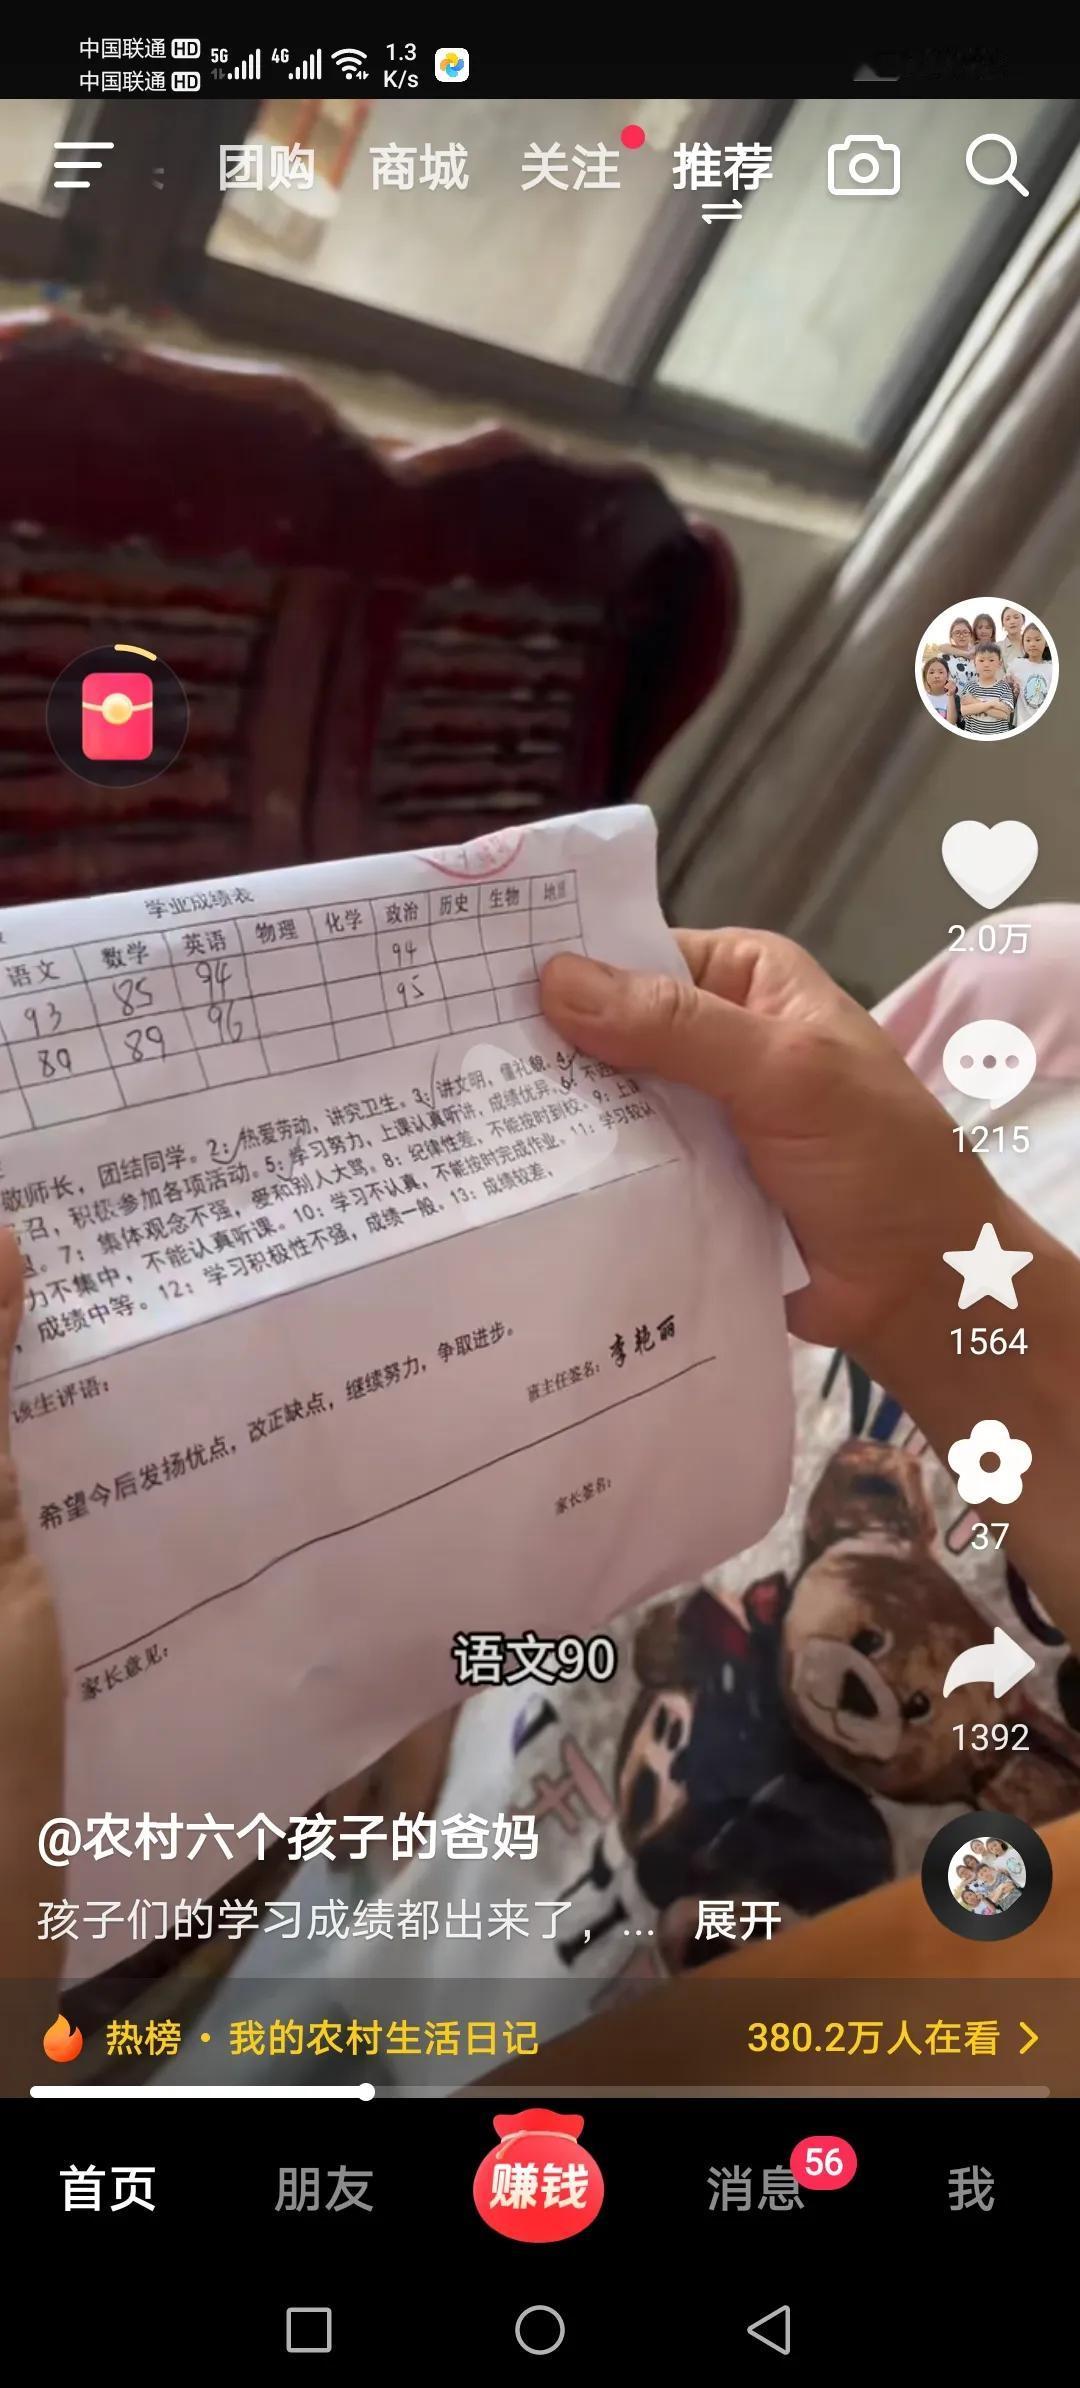 中国联通 HD 5G 4G 1.3 K/s
中国联通 HD
团购 商城 关注 推荐
学业成绩表
语文 数学 英语 物理 化学 政治 历史 生物
93 85 94 94
80 89 96 95
敬师长，团结同学。2：热爱劳动，讲究卫生。3：讲文明，懂礼貌。4
召，积极参加各项活动。5：学习努力，上课认真听讲，成绩优异。6：不
。7：集体观念不强，爱和别人大骂。8：纪律性差，不能按时到校。9：上课
力不集中，不能认真听课。10：学习不认真，不能按时完成作业。11：学习较认
，成绩中等。12：学习积极性不强，成绩一般。13：成绩较差，
该生评语：
希望今后发扬优点，改正缺点，继续努力，争取进步。
班主任签名：李艳丽
家长签名：
家长意见：
语文90
2.0万
1215
1564
37
1392
@农村六个孩子的爸妈
孩子们的学习成绩都出来了，... 展开
热榜・我的农村生活日记 380.2万人在看
首页 朋友 赚钱 消息 56 我